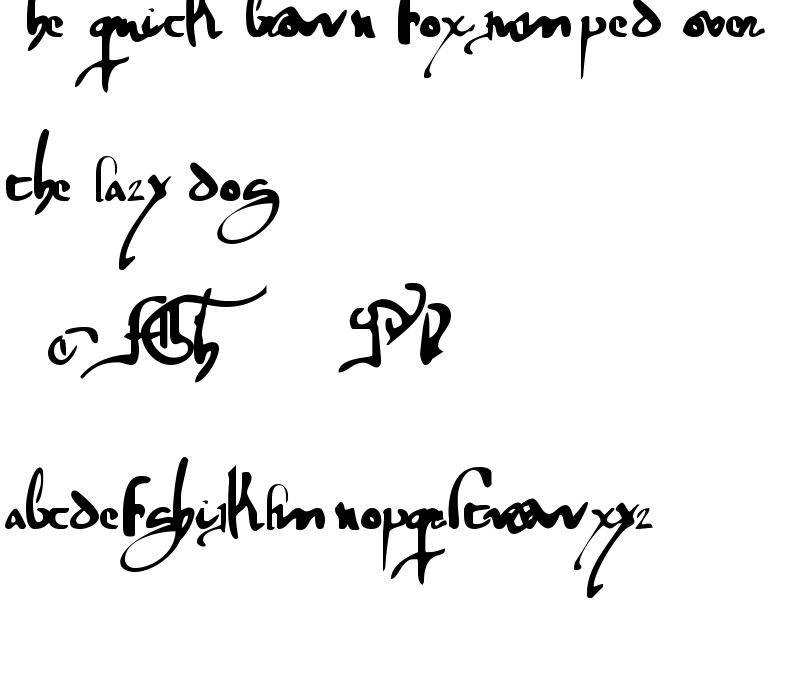 he quick brown fox jumped over
the lazy dog
abcdefghijklmnopqrstuvwxyz